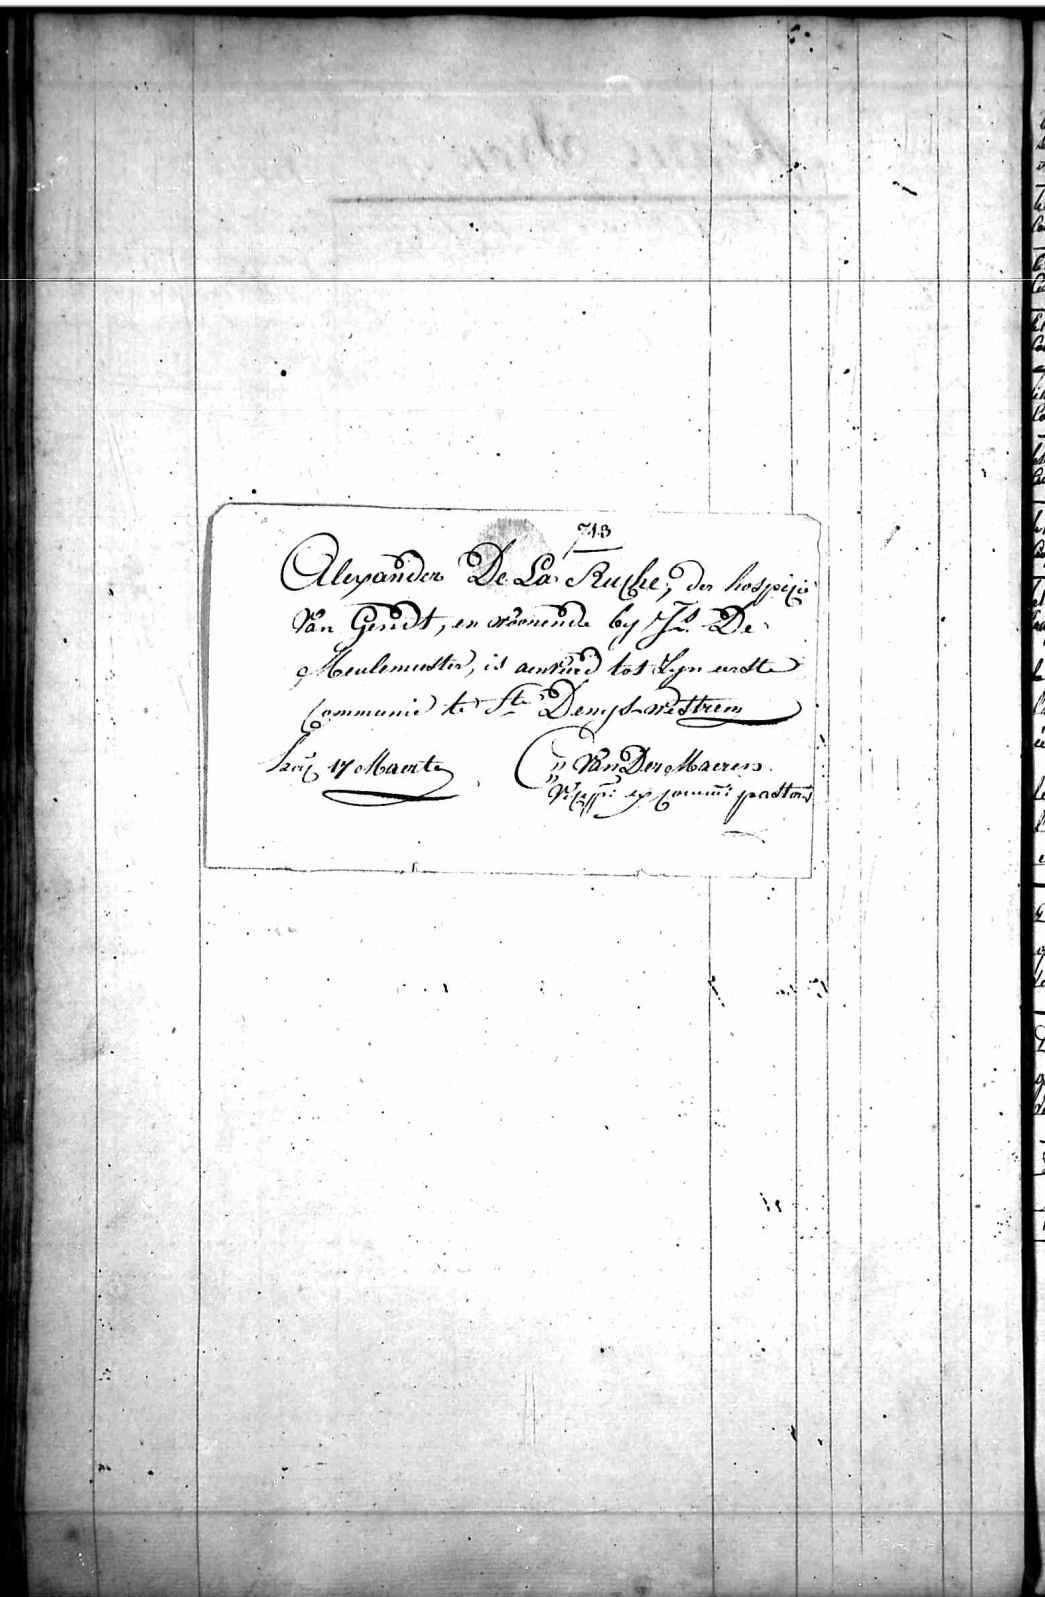 713
Alexander De La Ruche, der hospicie
Van Gendt, en woonende by Js. De
Meulemeester, is aenveird tot zyn eerste
Communie te Ste Denys-westrem
17 Maerte
C: Van Der Maeren
ex comm: pastoris